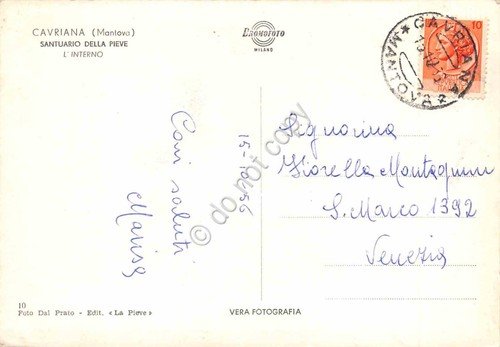 CAVRIANA (Mantova)
SANTUARIO DELLA PIEVE
L'INTERNO
Bromofoto
MILANO
10
ITALIA
CAVRIANA
* MANTOVA *
15-10-56
Cari saluti
Marisa
Signorina
Fiorella Montagnini
S. Marco 1392
Venezia
do not copy
10
Foto Dal Prato - Edit. «La Pieve»
VERA FOTOGRAFIA